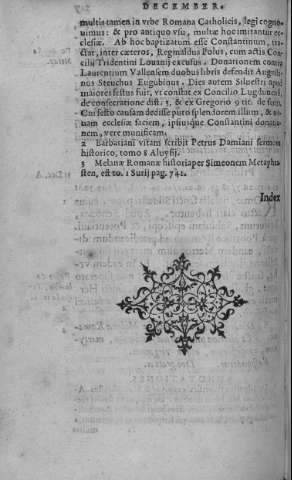 DECEMBER.
multis tamen in vrbe Romana Catholicis, legi cognouimus: & pro antiquo vsu, multæ hoc imitantur ecclesiæ. Ab hoc baptizatum esse Constantinum,
ctat, inter cæteros, Reginaldus Polus, cum actis Concilij Tridentini Louanij excusus. Donationem contra
Laurentium Vallensem duobus libris defendit Augustinus Steuchus Eugubinus. Dies autem Siluestri
maiores festus fuit, vt constat ex Concilio Lugdunēsi,
de consecratione dist. 3, & ex Gregorio 9 tit. de ferijs.
Cui festo causam dedisse puto splendorem illum, &
uam ecclesiæ faciem, ipsiusque Constantini donationem, vere munificam.
2 Barbatiani vitam scribit Petrus Damiani sermone
historico, tomo 8 Aluysij.
3 Melanæ Romanæ historia per Simeonem Metaphrasten, est to. 1 Surij pag. 742.
Index